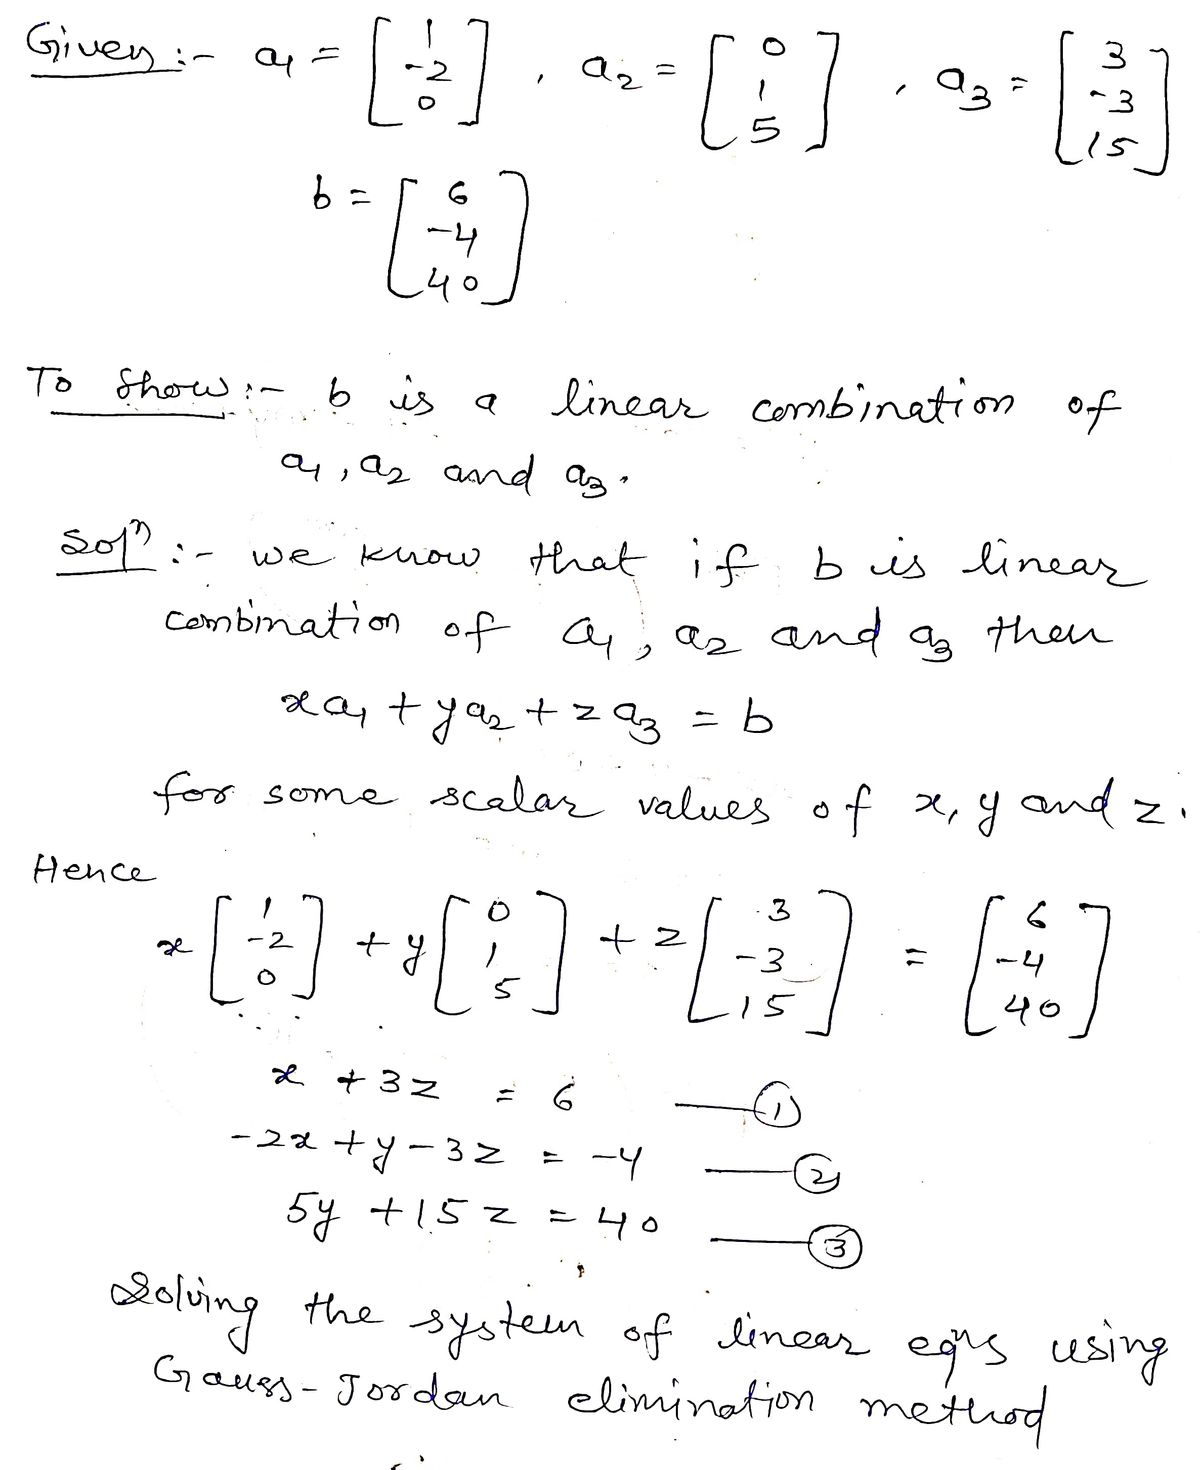 Given :- a1 = [1 -2 0] , a2 = [0 1 5] , a3 = [3 -3 15]
b = [6 -4 40]
To Show :- b is a linear combination of
a1, a2 and a3.
Solⁿ :- we know that if b is linear
combination of a1, a2 and a3 then
xa1 + ya2 + za3 = b
for some scalar values of x, y and z.
Hence
x[1 -2 0] + y[0 1 5] + z[3 -3 15] = [6 -4 40]
x + 3z = 6 —①
-2x + y - 3z = -4 —②
5y + 15z = 40 —③
Solving the system of linear eqⁿs using
Gauss-Jordan elimination method